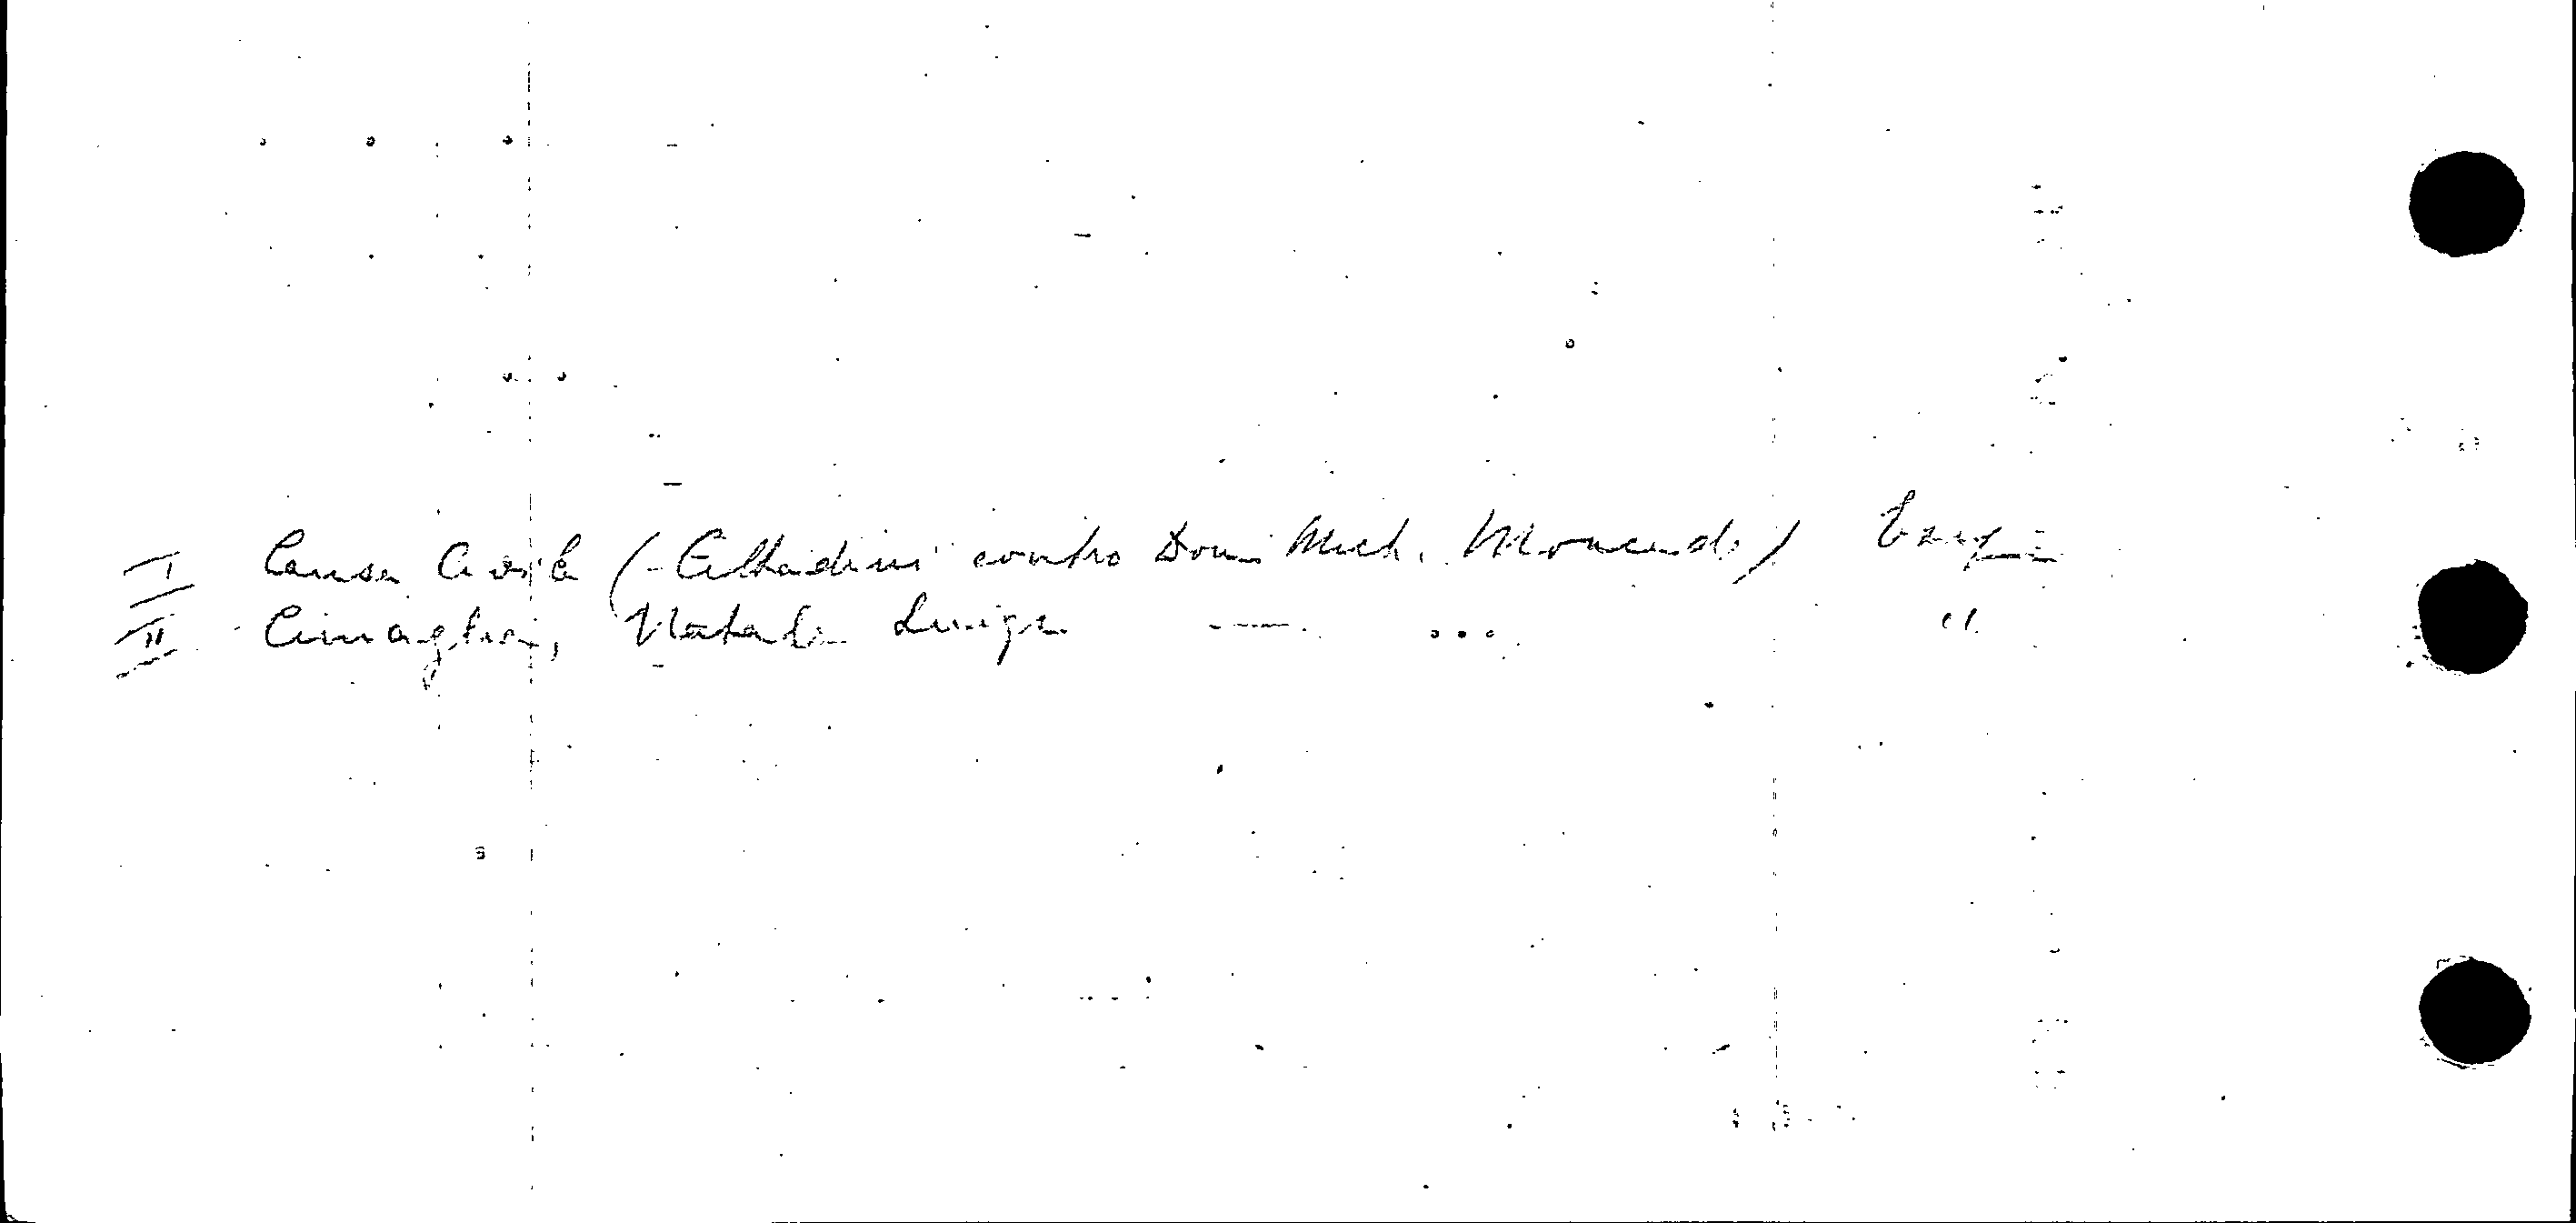 I Causa Civile (-Cittadini contro Dom. Mich. Moncada)
II Cimaglia, Natale Luigi — ... "